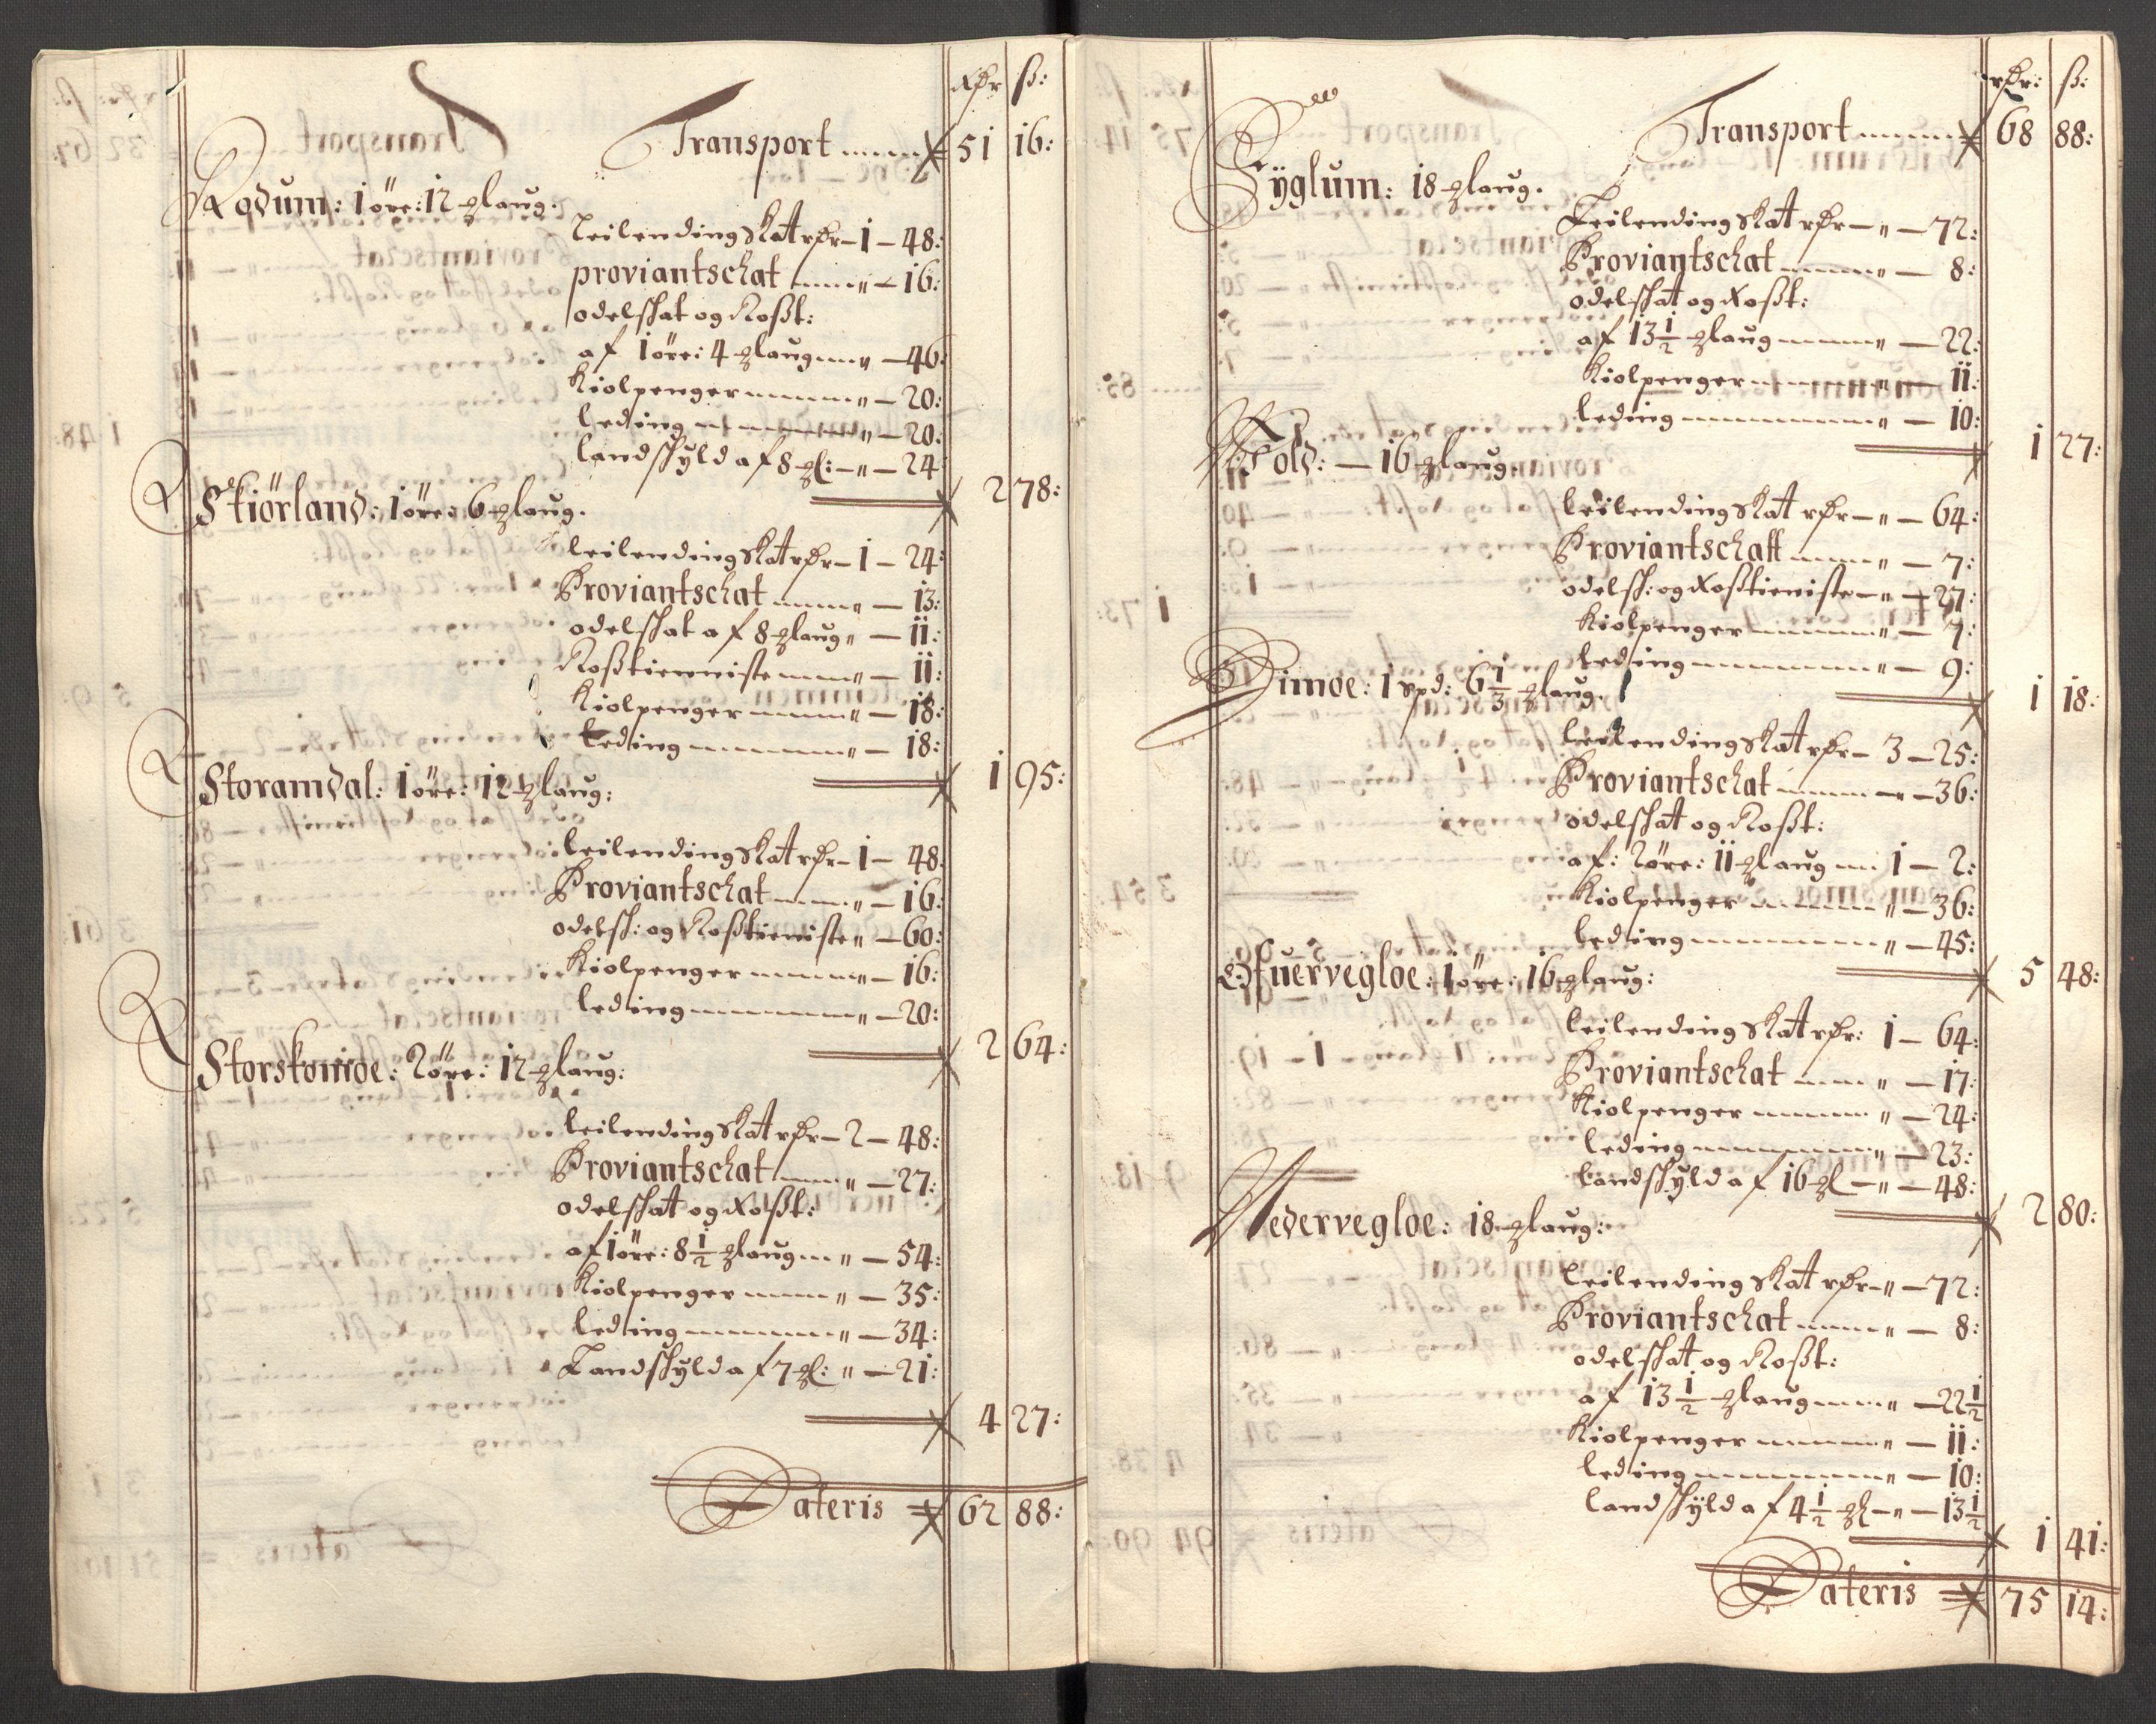 Rdr ß:
Transport 51 16:
Rodum: 1 öre: 12 laug.
Leilending Skat rdr – 1 – 48:
proviantschat " – 16:
odelskat og Roßt:
af 1 öre: 4 laug " – 46:
Kiolpenger " – 20:
leding " – 20:
landskyld af 8 – " – 24
2 78:
Skiörland: 1 öre: 6 laug.
leilending Skat rdr – 1 – 24:
Proviantschat " – 13:
odelskat af 8 laug " – 11:
Roßtienniste " – 11:
Kiolpenger " – 18:
leding " – 18:
1 95:
Storamdal: 1 öre: 12 laug:
leilending Skat rdr – 1 – 48
Proviantschat " – 16:
odelsk: og Roßtieniste " – 60:
Kiolpenger " – 16:
leding " – 20:
2 64:
Storskomoe: 2 öre: 12 laug:
leilending Skat rdr – 2 – 48:
Proviantschat " – 27:
odelskat og Roßt:
af 1 öre: 8 1/2 laug " – 54:
Kiolpenger " – 35:
leding " – 34:
Landskyld af 7 : " – 21:
4 27:
Lateris 62 88:
rdr: ß:
Transport 68 88:
Fÿglum: 18 laug.
Leilending Skat rdr – " – 72:
Proviantschat " – 8:
odelskat og Roßt:
af 13 1/2 laug " – 22:
Kiolpenger " – 11:
leding " – 10:
1 27:
Wold: – 16 laug.
leilending Skat rdr – " – 64:
Proviantschatt " – 7:
odelsk: og Roßtieniste – " – 27:
Kiolpenger " – 7:
leding " – 9:
1 18:
Dimoe: 1 spd: 6 1/3 laug.
leilending Skat rdr – 3 – 25:
Proviantschat – 36:
odelskat og Roßt:
af: 2 öre: 11 laug 1 – 2:
Kiolpenger " – 36:
leding " – 45:
5 48:
Ofuervegloe: 1 öre: 16 laug:
leilending Skat rdr: 1 – 64:
Proviantschat " – 17:
Kiolpenger " – 24:
leding " – 23:
landskyld af 16 – " – 48:
2 80:
Nedervegloe: 18 laug:
leilending Skat rdr – " – 72:
Proviantschat " – 8:
odelskat og Roßt:
af 13 1/2 laug " – 22 1/2
Kiolpenger " – 11:
leding " – 10:
landskyld af 4 1/2 – " – 13 1/2
1 41:
Lateris 75 14: